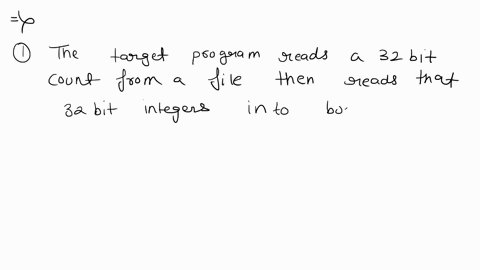 ① The target program reads a 32 bit
count from a file then reads that
32 bit integers in to bo